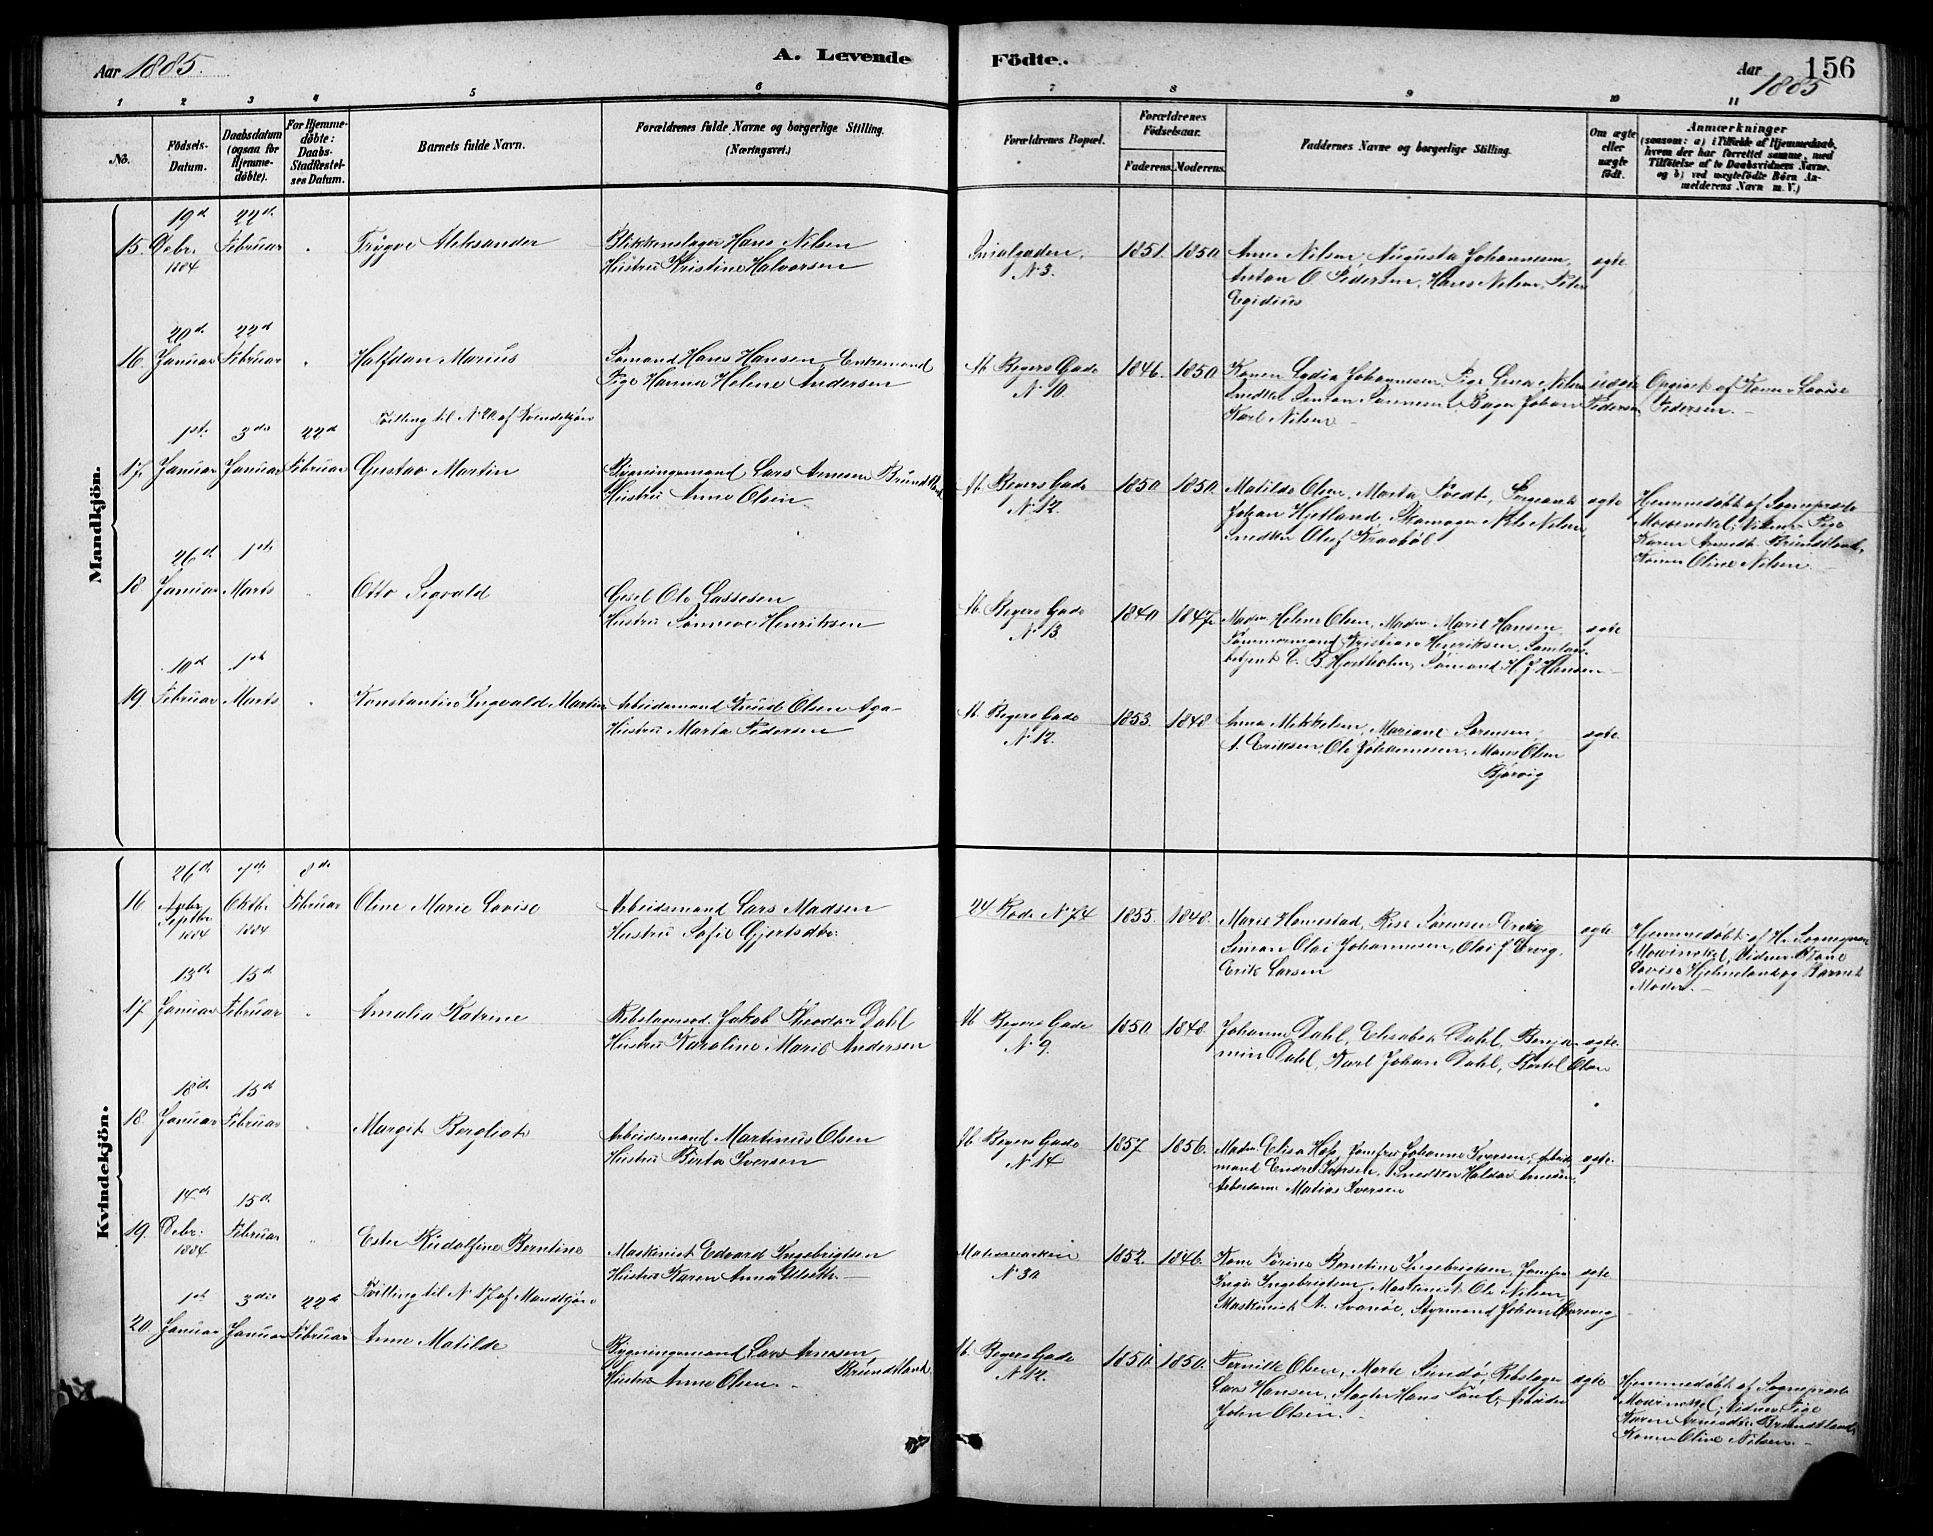 Aar 1885.
A. Levende
Fødte.
Aar 1885
156
1 2 3 4 5 6 7 8 9 10 11
No.
Fødsels-
Datum.
Daabsdatum
(ogsaa for
Hjemme-
døbte).
For Hjemme-
døbte:
Daabs-
Stadfæstel-
ses Datum.
Barnets fulde Navn.
Forældrenes fulde Navne og borgerlige Stilling.
(Næringsvei.)
Forældrenes Bopæl.
Forældrenes
Fødselsaar.
Faderens. Moderens.
Faddernes Navne og borgerlige Stilling.
Om ægte
eller
uægte
født.
Anmærkninger
(saasom: a) i Tilfælde af Hjemmedaab,
hvem der har forrettet samme, med
Tilføielse af to Daabsvidners Navne,
og b) ved uægtefødte Børn An-
melderens Navn m. V.)
Mandkjön.
19d 22d
15. Debr. Februar " Trygve Aleksander Blikkenslager Hans Nilsen
1884 Hustru Kristine Halvorsen
N 3. 1851. 1850. Anne Nilsen, Augusta Johannesen,
Anton O. Pedersen, Hans Nilsen, Peter
Egidius
ægte
20d 22d
16. Januar Februar " Halfdan Marius Sømand Hans Hansen, Enkemand
Pige Hanna Helene Andersen
M. Beyers Gade 1846. 1850. Konen Lydia Johannesen, Pige Lena Nilsen
N 10. Snedker Simon Sørensen, Bager Johan Pedersen
Karl Nilsen
uægte Opgivet af Konen Lovise
Pedersen.
Tvilling til N 20 af Kvindekjøn
1st 3die 22d
17. Januar Januar Februar Gustav Martin Bygningsmand Lars Arnesen Brundtland
Hustru Anne Olsen
M. Beyers Gade 1850. 1850. Matilde Olsen, Marta Tvedt, Sergeant
N 12. Johan Hjetland, Skomager Nils Nilsen,
Snedker Oluf Kraabøl
ægte Hjemmedøbt af Sogneprest
Mowinckel, Vidner Pige
Karen Arnesdtr Brundtland,
Konen Oline Nilsen.
26d 1ste
18. Januar Marts " Otto Sigvald Gesel Ole Lassesen
Hustru Sønneve Henriksen
M. Beyers Gade 1840 1847. Madm Helene Olsen, Madm Marie Hansen,
N 13 Tømmermand Kristian Henriksen,
betjent C. B. Hjortholm, Sømand H. J. Hansen
ægte
10d 1ste
19. Februar Marts " Konstantin Ingvald Martin Arbeidsmand Knud Olsen Aga
Hustru Marta Pedersen
M. Beyers Gade 1853. 1848. Anna Mikkelsen, Mariane Sørensen,
N 12. A. Eriksen, Ole Johannesen, Mons Olsen
Bjørvig
ægte
Kvindekjön.
26d 7de 8de
16. Septbr Oktbr. Februar Oline Marie Lovise Arbeidsmand Lars Madsen
1884 1884 Hustru Sofie Gjertsdtr.
24 Rode N 74 1855. 1848. Marie Havestad,
Simon Olai Johannesen,
Erik Larsen
ægte Hjemmedøbt af Hr. Sognepr.
Mowinckel, Vidner Kone
Lovise Hjelmeland og Barnets
Moder.
13de 15d
17. Januar Februar " Amalia Katrine Rebslagersvd. Jakob Theodor Dahl
Hustru Karoline Marie Andersen
M. Beyers Gade 1850 1848. Johanne Dahl, Elisabet Dahl, Benja-
N 9. min Dahl, Karl Johan Dahl, Bertel Olsen
ægte.
18de 15d
18. Januar Februar " Margit Bergliot Arbeidsmand Martinus Olsen
Hustru Berta Iversen
M. Beyers Gade 1857. 1856. Madm Elisa Hop, Jomfru Johanne Iversen, Arbeids
N 14 mand Endre Iversen, Snedker Haldor Arnesen,
Arbeidsm Matias Iversen
ægte.
14de 15d
19. Debr. Februar " Ester Rudolfine Berntine Maskinist Edvard Ingebrigtsen
1884 Hustru Karen Anna
N 30 1852. 1846. Kone Serine Berntine Ingebrigtsen, Jomfru
Inga Ingebrigtsen, Maskinist Ole Nilsen,
Maskinist A. Svanøe, Styrmand Johan
ægte
Tvilling til N 17 af Mandkjøn
1st 3die 22d
20. Januar Januar Februar Anne Matilde Bygningsmand Lars Arnesen
Brundtland
Hustru Anne Olsen.
M. Beyers Gade 1850. 1850. Pernille Olsen, Marte Sundø, Rebslager
N 12. Lars Hansen, Slagter Hans
John Olsen.
ægte Hjemmedøbt af Sogneprest
Mowinckel, Vidner Pige
Karen Arnesdtr. Brundtland,
Konen Oline Nilsen.